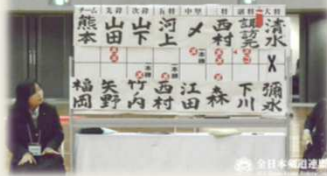 チーム 先鋒 次鋒 五将 中堅 三将 副将 大将
熊本 山田 山下 河上 〆 西村 諏訪元 清水
一本勝 一本勝
福岡 矢野 竹内 西村 江田 森 下川 彌永
全日本剣道連盟